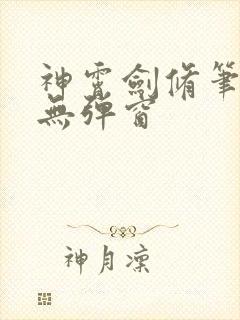 神霄劍脩筆
無彈窗
神月凜